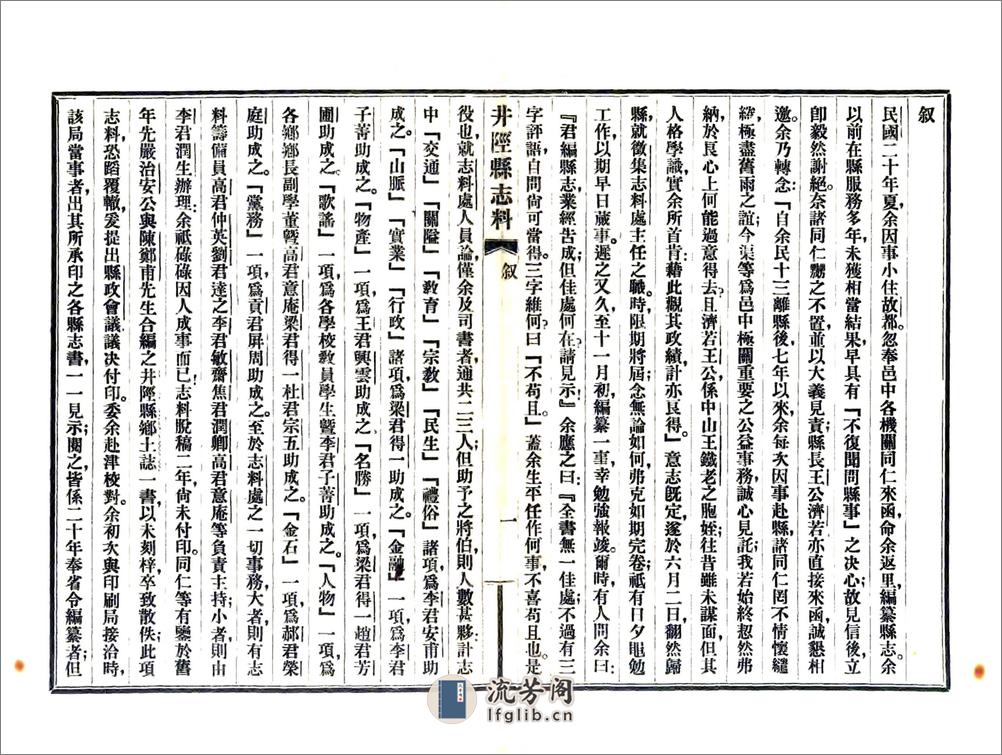 叙
民國二十年夏余因事小住故都忽奉邑中各機關同仁來函命余返里編纂縣志余
以前在縣服務多年未獲相當結果早具有「不復聞問縣事」之決心故見信後立
卽毅然謝絕奈諸同仁嬲之不置並以大義見責縣長王公濟若亦直接來函誠懇相
邀余乃轉念「自余民十三離縣後七年以來余每次因事赴縣諸同仁罔不情懷繾
綣極盡舊雨之誼今渠等爲邑中極關重要之公益事務誠心見託我若始終恝然弗
納於良心上何能過意得去且濟若王公係中山王鐵老之胞姪往昔雖未謀面但其
人格學識實余所首肯藉此觀其政績計亦良得」意志旣定遂於六月二日翻然歸
縣就徵集志料處主任之職時限期將屆念無論如何弗克如期完卷祗有日夕黽勉
工作以期早日蕆事遲之又久至十一月初編纂一事幸勉強報竣爾時有人問余曰
『君編縣志業經告成但佳處何在請見示』余應之曰『全書無一佳處不過有三
字評語自問尙可當得三字維何曰「不苟且」蓋余生平任作何事不喜苟且也是
井陘縣志料 叙 一
役也就志料處人員論僅余及司書者通共二三人但助予之將伯則人數甚夥計志
中「交通」「關隘」「敎育」「宗敎」「民生」「禮俗」諸項爲李君安甫助
成之「山脈」「實業」「行政」諸項爲梁君得一助成之「金融」一項爲李君
子菁助成之「物產」一項爲王君興雲助成之「名勝」一項爲梁君得一趙君芳
圃助成之「歌謠」一項爲各學校敎員學生曁李君子菁助成之「人物」一項爲
各鄕鄕長副學董曁高君意庵梁君得一杜君宗五助成之「金石」一項爲郝君榮
庭助成之「黨務」一項爲貢君屏周助成之至於志料處之一切事務大者則有志
料籌備員高君仲英劉君達之李君敏齋焦君潤卿高君意庵等負責主持小者則由
李君潤生辦理余祇碌碌因人成事而已志料脫稿二年尙未付印同仁等有鑒於舊
年先嚴治安公與陳鄭甫先生合編之井陘縣鄕土誌一書以未刻梓卒致散佚此項
志料恐蹈覆轍爰提出縣政會議議决付印委余赴津校對余初次與印刷局接洽時
該局當事者出其所承印之各縣志書一一見示閱之皆係二十年奉省令編纂者但
流芳阁
lfglib.cn